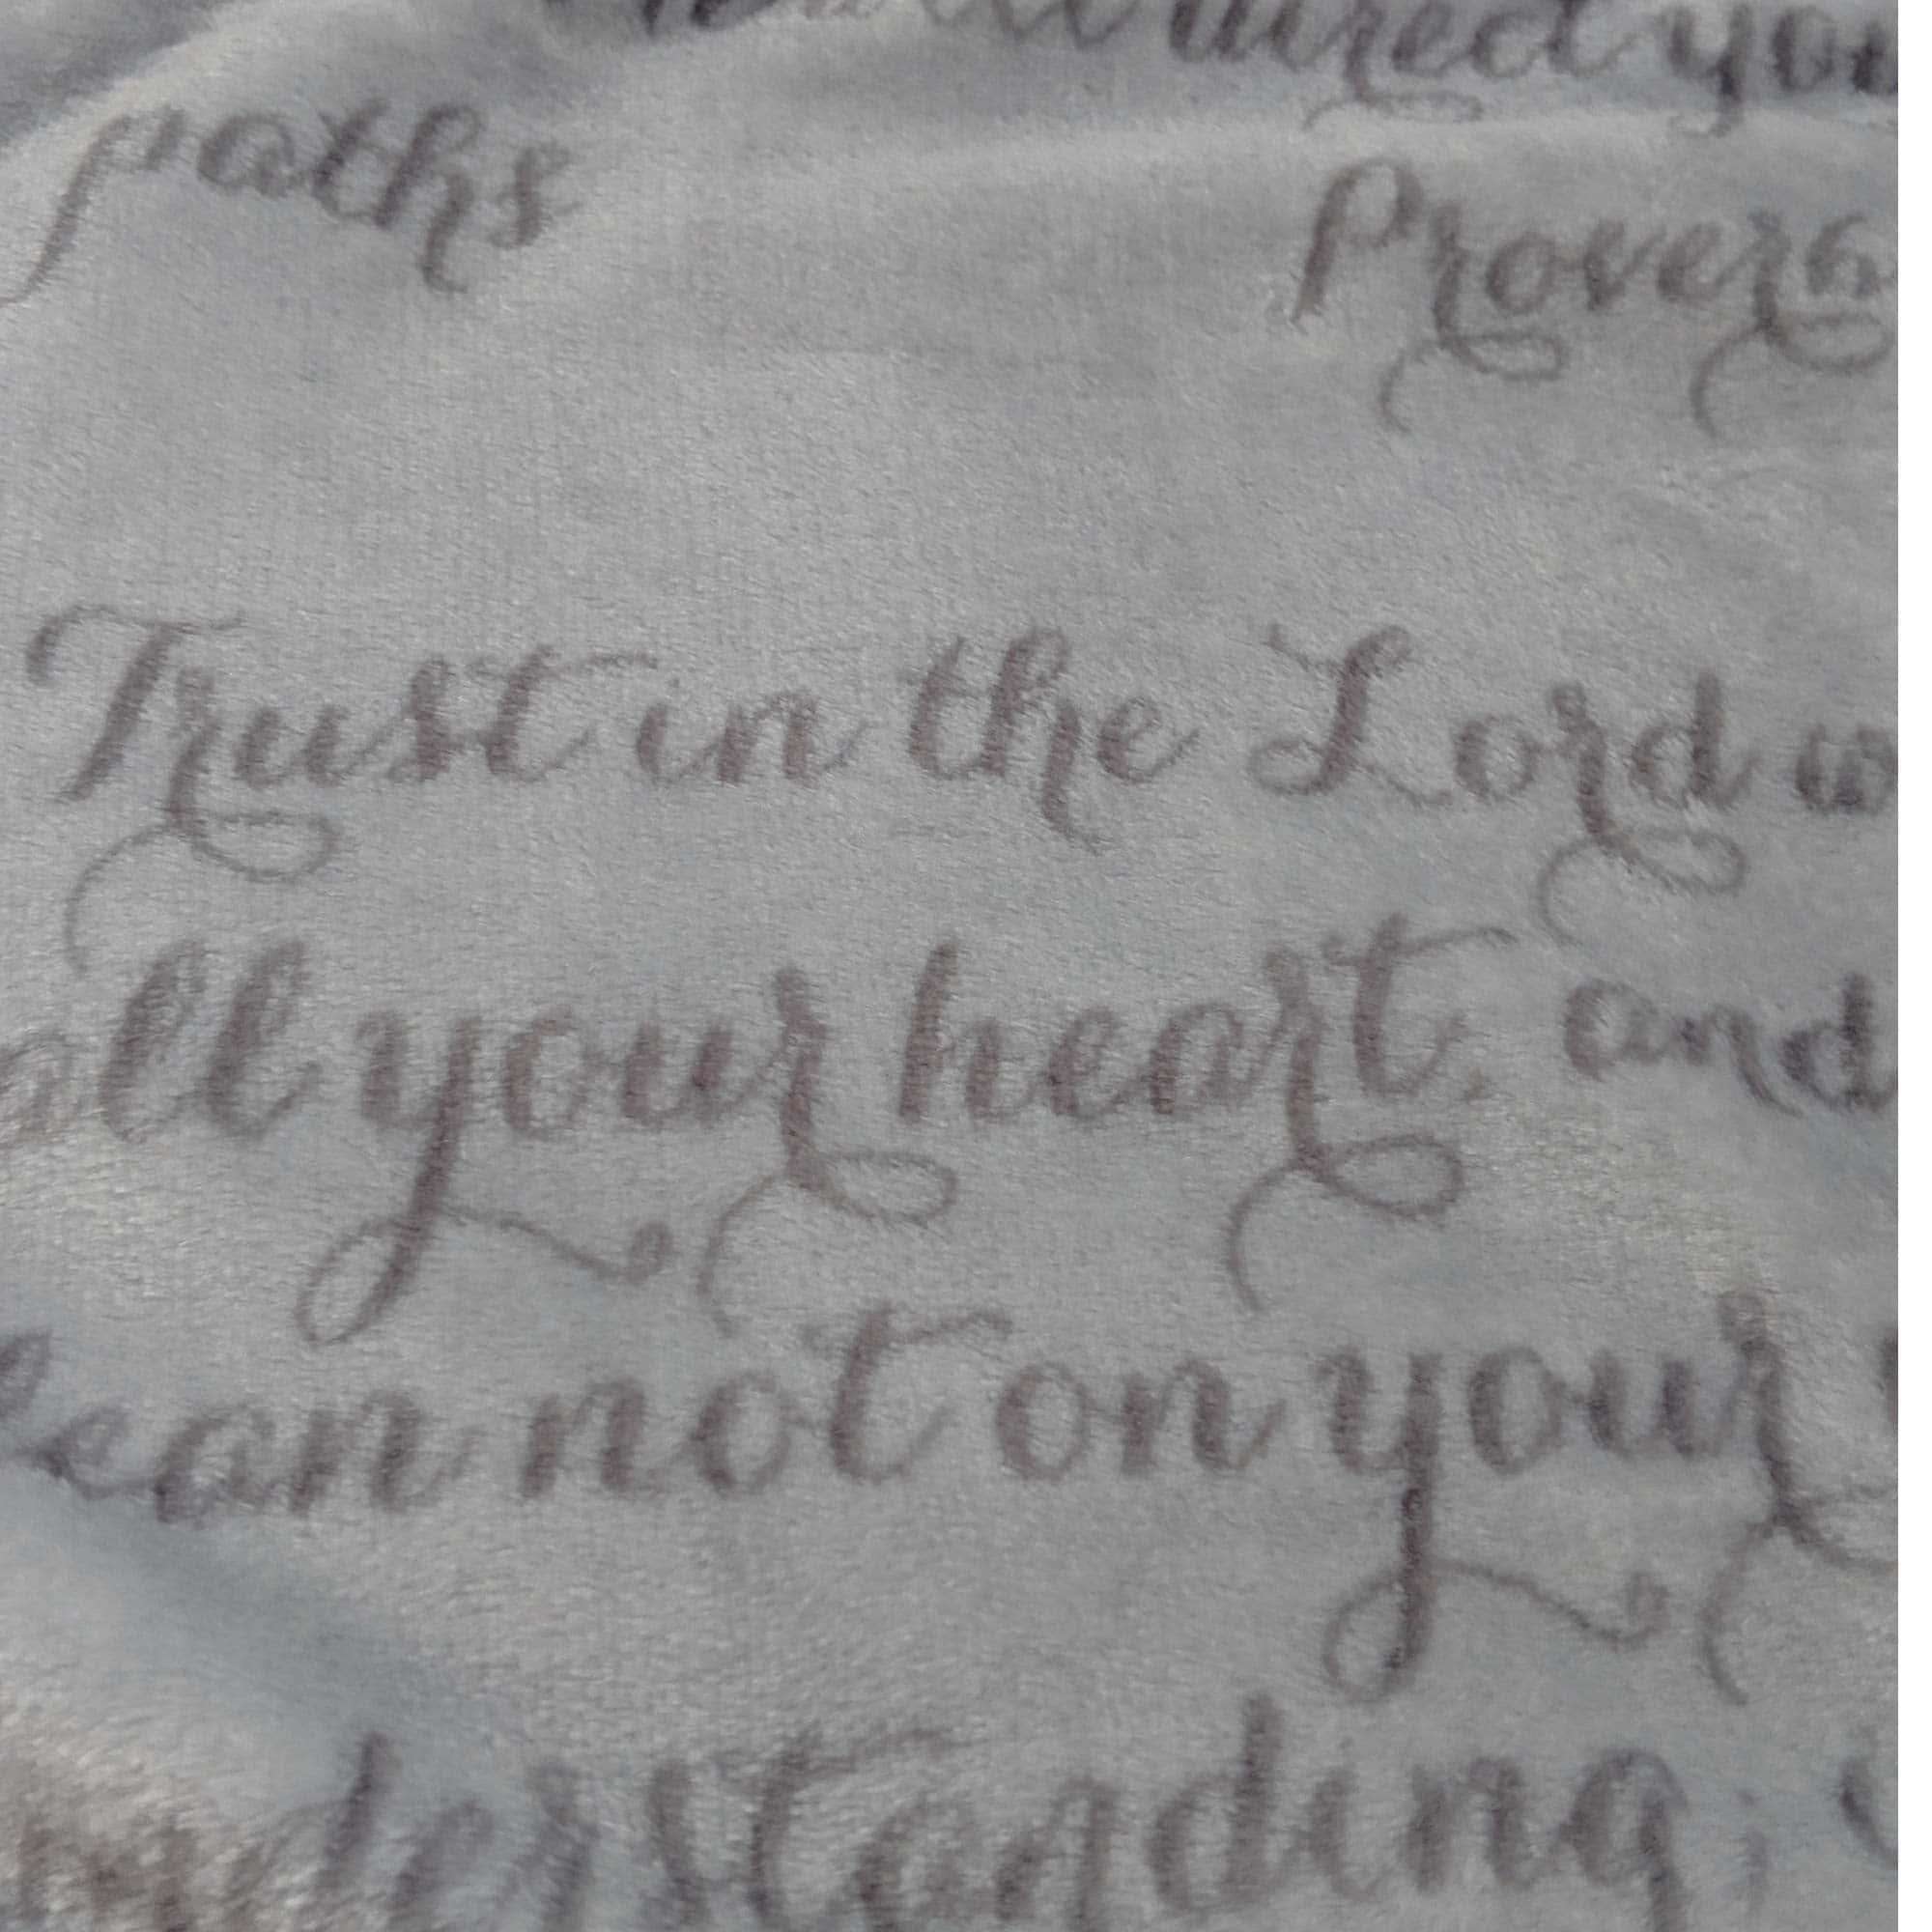 will direct you
paths
Proverb
Trust in the Lord w
all your heart, and
lean not on your
understanding;